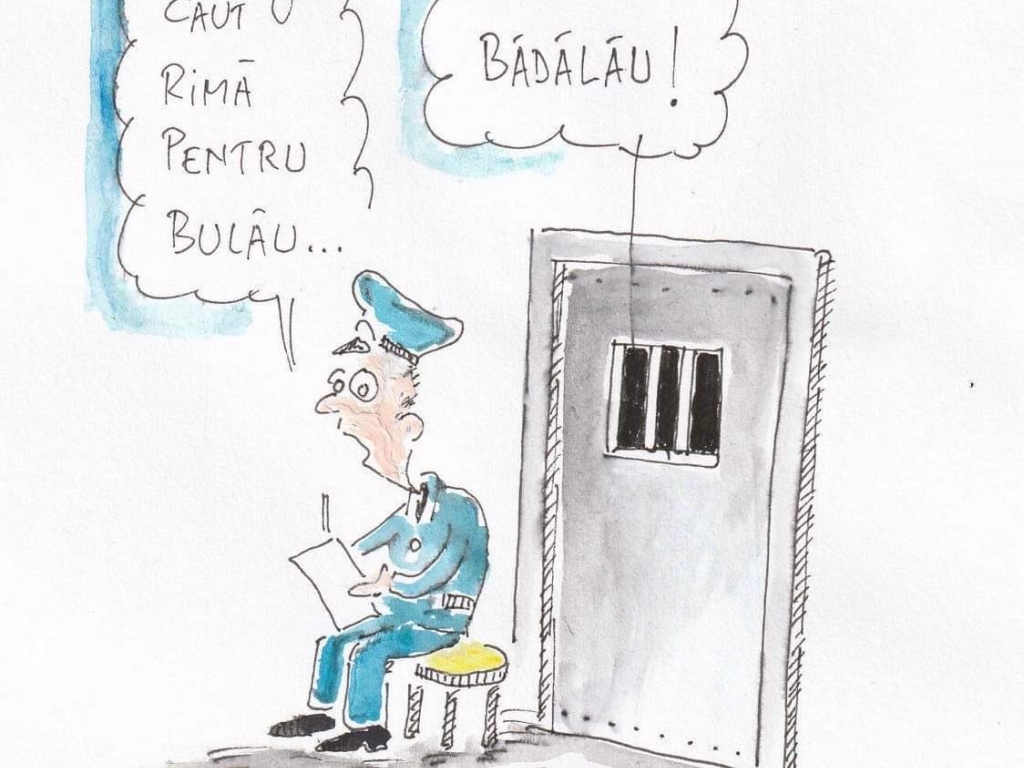 CAUT O
RIMĂ
PENTRU
BULĂU...
BĂDĂLĂU!